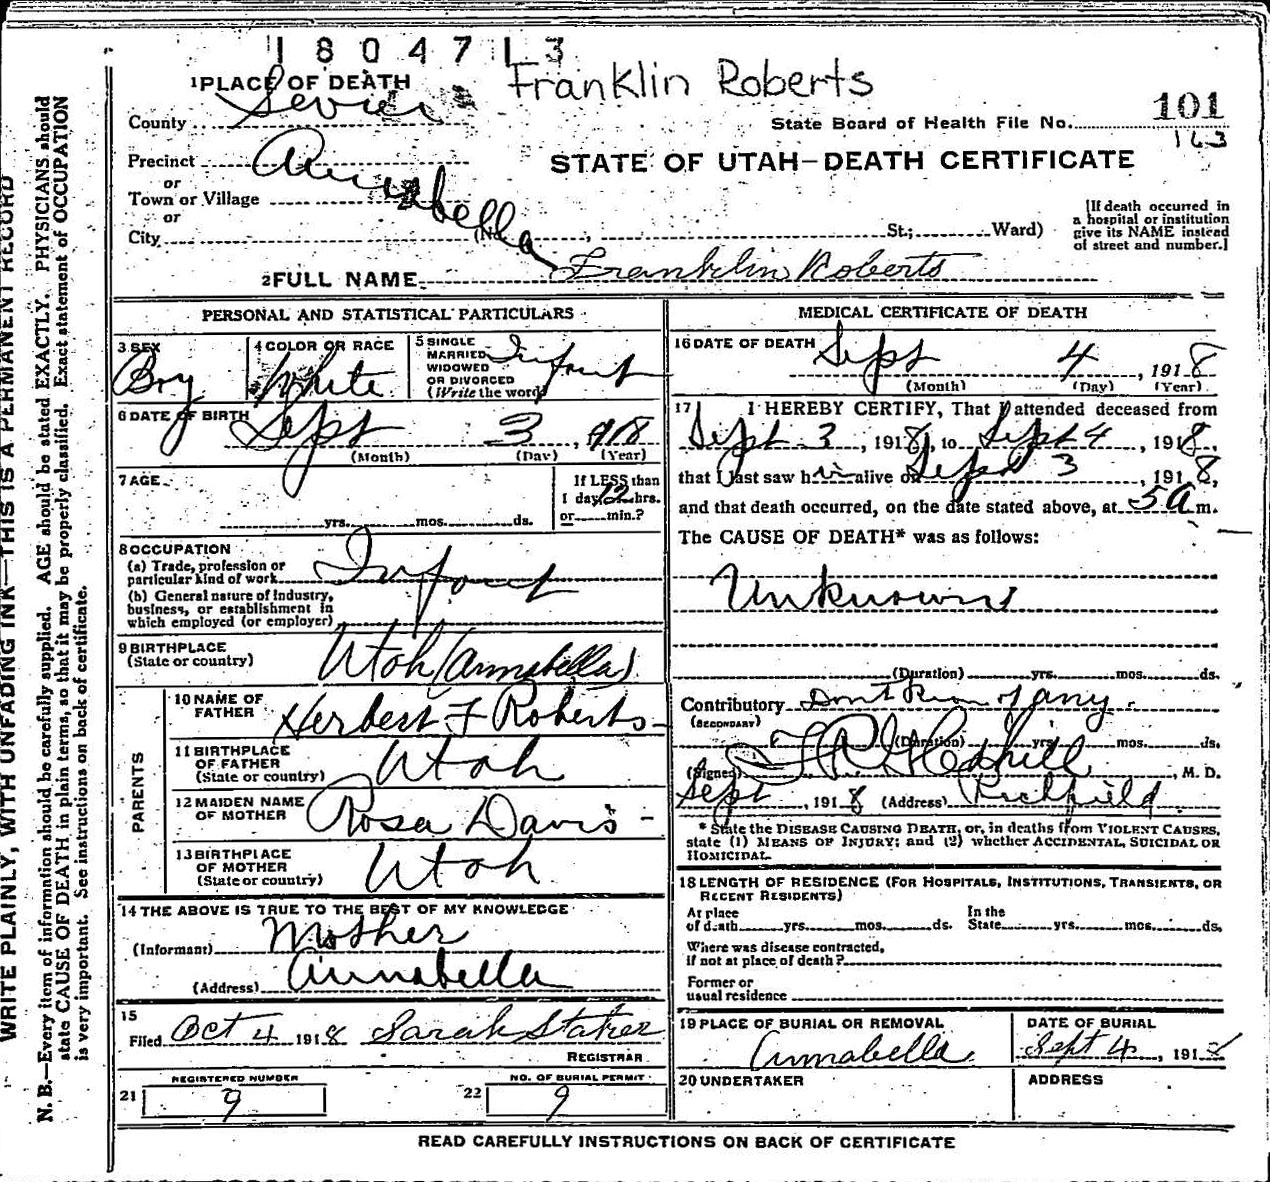 1 8 0 4 7 1 3
Franklin Roberts
1 PLACE OF DEATH
County Sevier
101
State Board of Health File No.
163
Precinct Annabella
or
Town or Village
or
City (No. , St.; Ward)
STATE OF UTAH—DEATH CERTIFICATE
[If death occurred in
a hospital or institution
give its NAME instead
of street and number.]
2 FULL NAME Franklin Roberts
PERSONAL AND STATISTICAL PARTICULARS
3 SEX
Boy
4 COLOR OR RACE
White
5 SINGLE
MARRIED
WIDOWED
OR DIVORCED
(Write the word)
Infant
6 DATE OF BIRTH
Sept 3, 1918
(Month) (Day) (Year)
7 AGE
yrs. mos. ds.
If LESS than
1 day, 12 hrs.
or min.?
8 OCCUPATION
(a) Trade, profession or
particular kind of work Infant
(b) General nature of Industry,
business, or establishment in
which employed (or employer)
9 BIRTHPLACE
(State or country) Utah (Annabella)
PARENTS
10 NAME OF
FATHER Herbert F Roberts
11 BIRTHPLACE
OF FATHER
(State or country) Utah
12 MAIDEN NAME
OF MOTHER Rosa Davis
13 BIRTHPLACE
OF MOTHER
(State or country) Utah
14 THE ABOVE IS TRUE TO THE BEST OF MY KNOWLEDGE
(Informant) Mother
(Address) Annabella
15
Filed Oct 4 1918 Sarah Staker
REGISTRAR
REGISTERED NUMBER
21 9
NO. OF BURIAL PERMIT
22 9
MEDICAL CERTIFICATE OF DEATH
16 DATE OF DEATH Sept 4, 1918
(Month) (Day) (Year)
17 I HEREBY CERTIFY, That I attended deceased from
Sept 3, 1918, to Sept 4, 1918,
that I last saw him alive on Sept 3, 1918,
and that death occurred, on the date stated above, at 5 A m.
The CAUSE OF DEATH* was as follows:
Unknown
(Duration) yrs. mos. ds.
Contributory Dont Know of any
(SECONDARY)
(Duration) yrs. mos. ds.
(Signed), M. D.
Sept, 1918 (Address) Richfield
* State the DISEASE CAUSING DEATH, or, in deaths from VIOLENT CAUSES,
state (1) MEANS OF INJURY; and (2) whether ACCIDENTAL, SUICIDAL OR
HOMICIDAL.
18 LENGTH OF RESIDENCE (FOR HOSPITALS, INSTITUTIONS, TRANSIENTS, OR
RECENT RESIDENTS)
At place In the
of death yrs. mos. ds. State yrs. mos. ds.
Where was disease contracted,
if not at place of death?
Former or
usual residence
19 PLACE OF BURIAL OR REMOVAL
Annabella
DATE OF BURIAL
Sept 4, 1918
20 UNDERTAKER
ADDRESS
READ CAREFULLY INSTRUCTIONS ON BACK OF CERTIFICATE
WRITE PLAINLY, WITH UNFADING INK—THIS IS A PERMANENT RECORD
N. B.—Every item of information should be carefully supplied. AGE should be stated EXACTLY. PHYSICIANS should
state CAUSE OF DEATH in plain terms, so that it may be properly classified. Exact statement of OCCUPATION
is very important. See instructions on back of certificate.